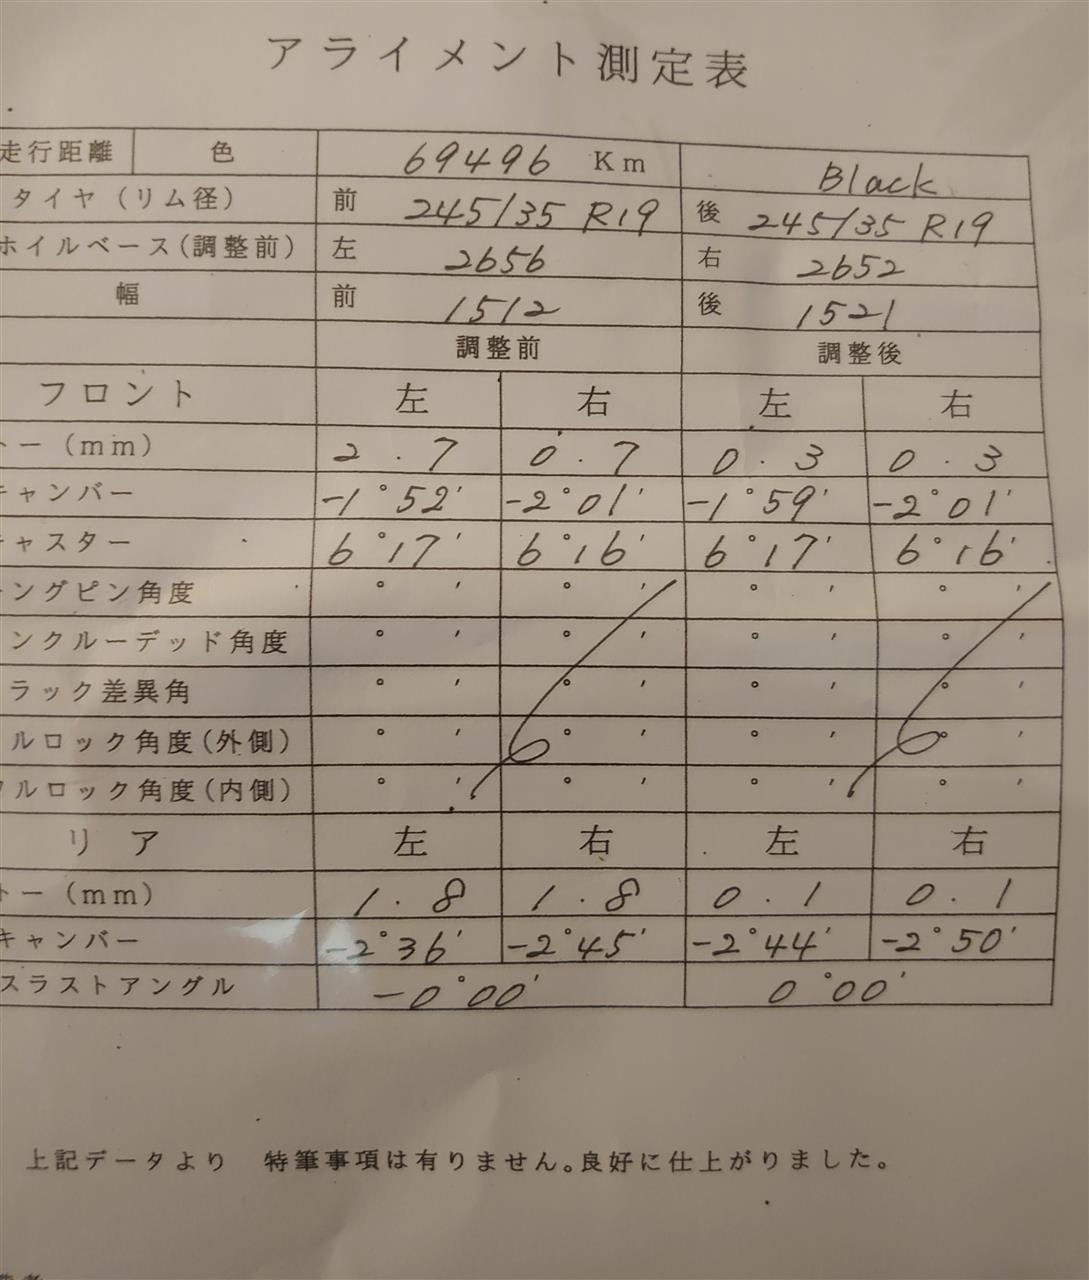 アライメント測定表
走行距離 色 69496 Km Black
タイヤ（リム径） 前 245/35 R19 後 245/35 R19
ホイルベース(調整前) 左 2656 右 2652
幅 前 1512 後 1521
調整前 調整後
フロント 左 右 左 右
トー(mm) 2.7 0.7 0.3 0.3
キャンバー -1°52′ -2°01′ -1°59′ -2°01′
キャスター 6°17′ 6°16′ 6°17′ 6°16′
ングピン角度 ° ′ ° ′ ° ′ ° ′
ンクルーデッド角度 ° ′ ° ′ ° ′ ° ′
ラック差異角 ° ′ ° ′ ° ′ ° ′
ルロック角度(外側) ° ′ ° ′ ° ′ ° ′
ルロック角度(内側) ° ′ ° ′ ° ′ ° ′
リア 左 右 左 右
トー(mm) 1.8 1.8 0.1 0.1
キャンバー -2°36′ -2°45′ -2°44′ -2°50′
スラストアングル -0°00′ 0°00′
上記データより 特筆事項は有りません。良好に仕上がりました。